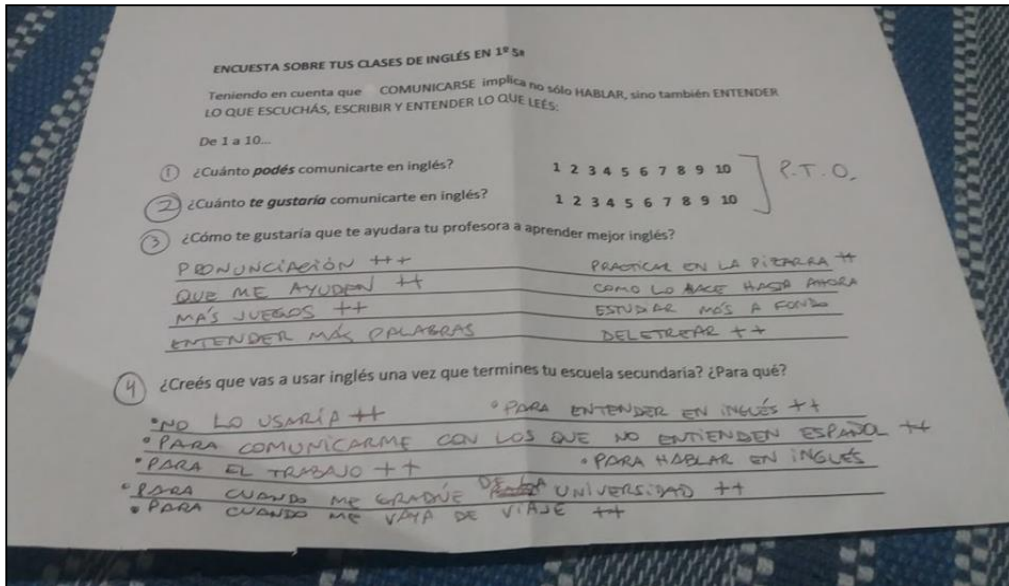 ENCUESTA SOBRE TUS CLASES DE INGLÉS EN 1º 5ª
Teniendo en cuenta que COMUNICARSE implica no sólo HABLAR, sino también ENTENDER
LO QUE ESCUCHÁS, ESCRIBIR Y ENTENDER LO QUE LEÉS:
De 1 a 10...
1 ¿Cuánto podés comunicarte en inglés? 1 2 3 4 5 6 7 8 9 10 P.T.O.
2 ¿Cuánto te gustaría comunicarte en inglés? 1 2 3 4 5 6 7 8 9 10
3 ¿Cómo te gustaría que te ayudara tu profesora a aprender mejor inglés?
PRONUNCIACIÓN +++ PRACTICAR EN LA PIZARRA ++
QUE ME AYUDEN ++ COMO LO HACE HASTA AHORA
MÁS JUEGOS ++ ESTUDIAR MÁS A FONDO
ENTENDER MÁS PALABRAS DELETREAR ++
4 ¿Creés que vas a usar inglés una vez que termines tu escuela secundaria? ¿Para qué?
• NO LO USARÍA ++ • PARA ENTENDER EN INGLÉS ++
• PARA COMUNICARME CON LOS QUE NO ENTIENDEN ESPAÑOL ++
• PARA EL TRABAJO ++ • PARA HABLAR EN INGLÉS
• PARA CUANDO ME GRADÚE DE LA UNIVERSIDAD ++
• PARA CUANDO ME VAYA DE VIAJE ++